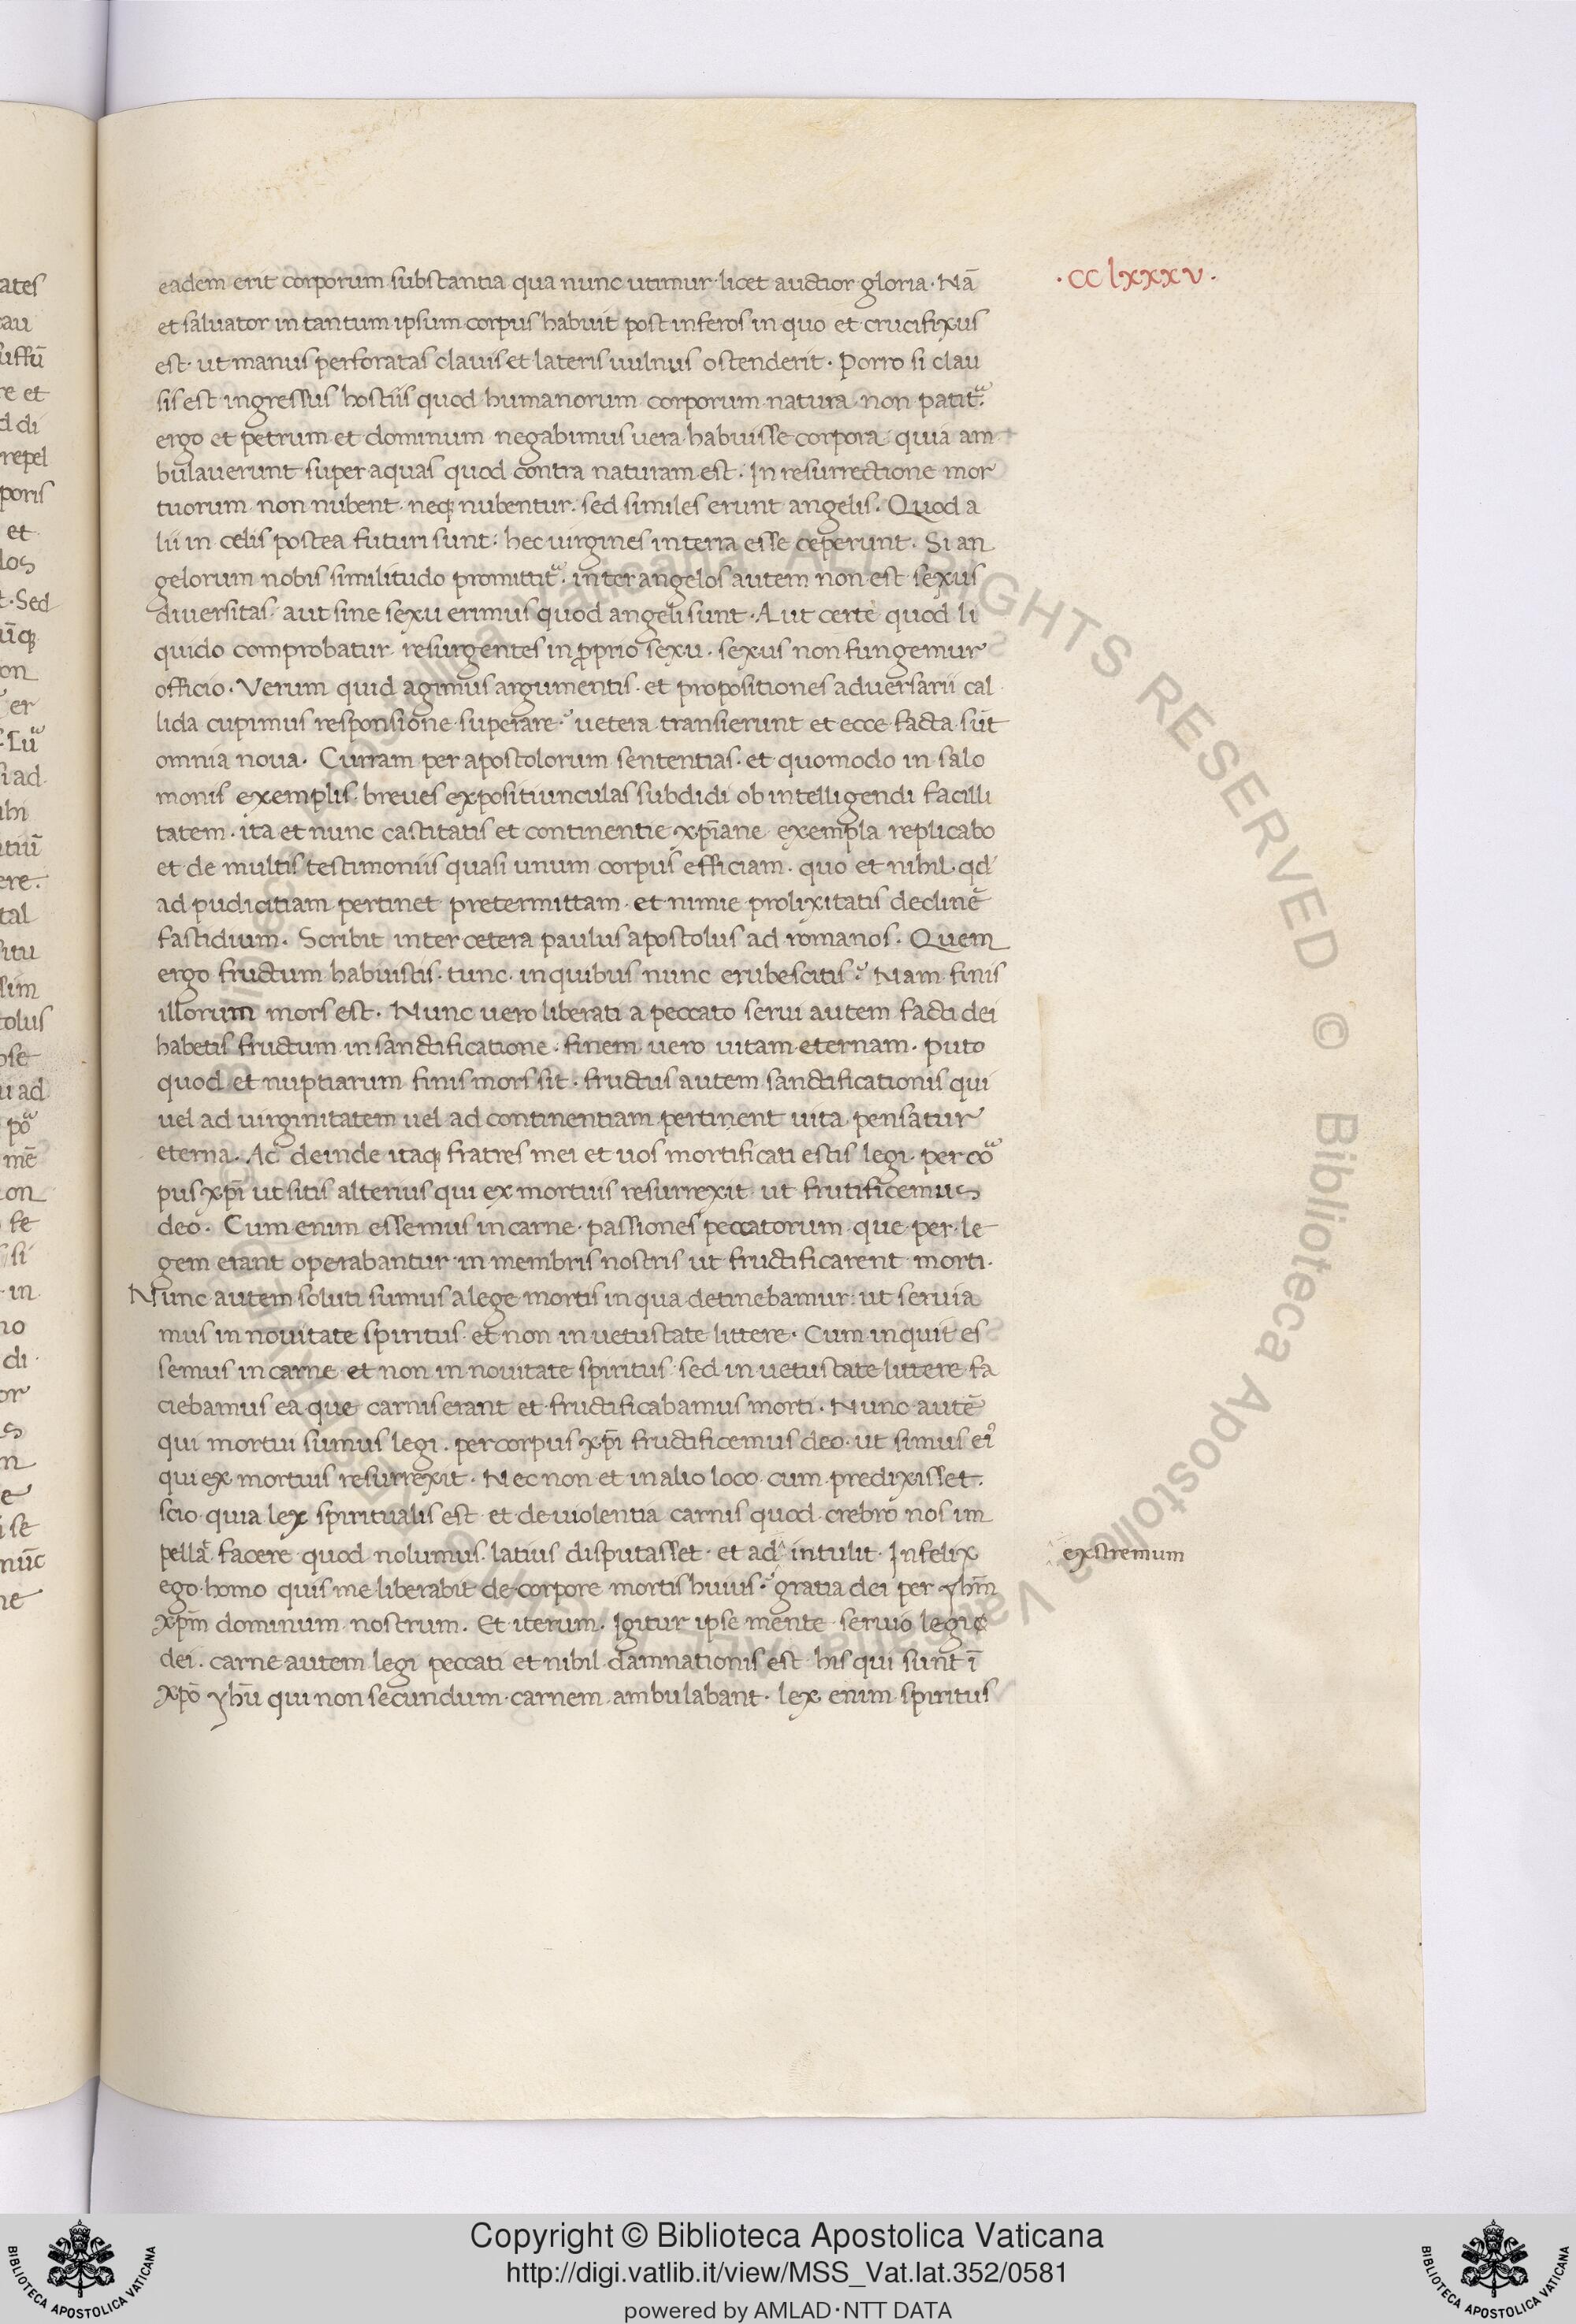 ·CClxxxv·
eadem erit corporum substantia qua nunc utimur· licet auctior gloria· Nā
et saluator in tantum ipsum corpus habuit post inferos in quo et crucifixus
est· ut manus perforatas clauis et lateris uulnus ostenderit· Porro si clau
sis est ingressus hostiis quod humanorum corporum natura non patit᷑·
ergo et petrum et dominum negabimus uera habuisse corpora· quia am
bulauerunt super aquas quod contra naturam est· In resurrectione mor
tuorum non nubent neqꝫ nubentur· sed similes erunt angelis· Quod a
lii in celis postea futuri sunt: hec uirgines in terra esse ceperunt· Si an
gelorum nobis similitudo promittit᷑· inter angelos autem non est sexus
diuersitas· aut sine sexu erimus quod angeli sunt· Aut certe quod li
quido comprobatur· resurgentes in ꝓprio sexu· sexus non fungemur
officio· Verum quid agimus argumentis· et propositiones aduersarii cal
lida cupimus responsione superare· uetera transierunt et ecce facta sūt
omnia noua· Curram per apostolorum sententias· et quomodo in salo
monis exemplis· breues expositiunculas subdidi ob intelligendi facilli
tatem· ita et nunc castitatis et continentie xp̄iane exempla replicabo
et de multis testimoniis quasi unum corpus efficiam· quo et nihil qd'
ad pudicitiam pertinet pretermittam· et nimie prolixitatis declinē
fastidium· Scribit inter cetera paulus apostolus ad romanos· Quem
ergo fructum habuistis tunc· in quibus nunc erubescitis? Nam finis
illorum mors est· Nunc uero liberati a peccato serui autem facti dei
habetis fructum in sanctificatione· finem uero uitam eternam· puto
quod et nuptiarum finis mors sit· fructus autem sanctificationis qui
uel ad uirginitatem uel ad continentiam pertinent uita pensatur
eterna· Ac deinde itaqꝫ fratres mei et uos mortificati estis legi· per co᷑
pus xp̄i ut sitis alterius qui ex mortuis resurrexit ut frutificemus
deo· Cum enim essemus in carne· passiones peccatorum que per le
gem erant operabantur in membris nostris ut fructificarent morti·
Nunc autem soluti sumus a lege mortis in qua detinebamur: ut seruia
mus in nouitate spiritus et non in uetustate littere· Cum inquit es
semus in carne et non in nouitate spiritus sed in uetustate littere fa
ciebamus ea que carnis erant et fructificabamus morti· Nunc autē
qui mortui sumus legi· per corpus xp̄i fructificemus deo· ut simus ei᷒
qui ex mortuis resurrexit· Nec non et in alio loco cum predixisset·
scio quia lex spiritualis est et de uiolentia carnis quod crebro nos im
pellat facere quod nolumus· latius disputasset· et ad^ intulit· Infelix
exstremum
ego homo quis me liberabit de corpore mortis huius? gratia dei per yhm̄
xp̄m dominum nostrum· Et iterum· Igitur ipse mente seruio legi
dei· carne autem legi peccati et nihil damnationis est his qui sunt ī
xp̄o yhū qui non secundum carnem ambulabant· lex enim spiritus
Copyright © Biblioteca Apostolica Vaticana
http://digi.vatlib.it/view/MSS_Vat.lat.352/0581
powered by AMLAD·NTT DATA